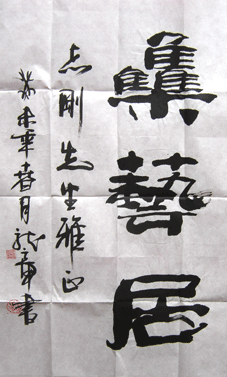 集藝居
志剛先生雅正
癸未年春月龍章書